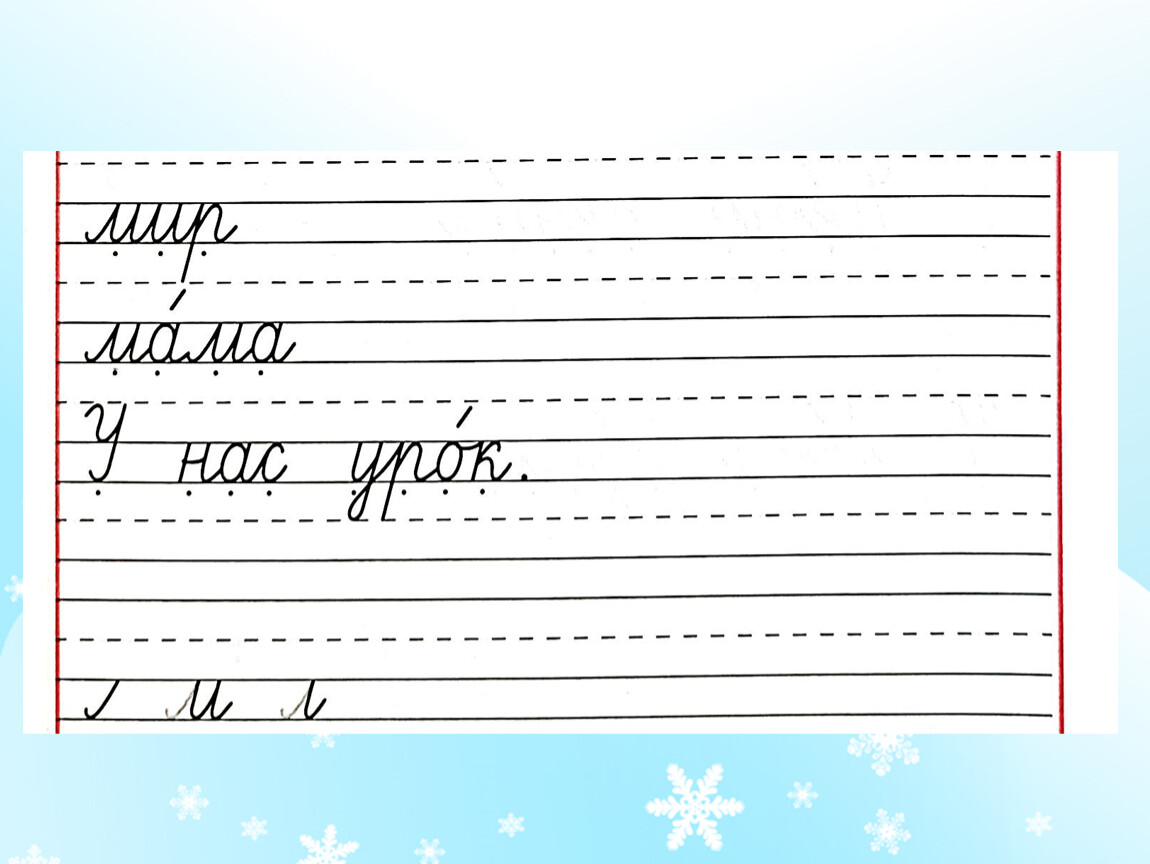 мир
ма́ма
У нас уро́к.
м л